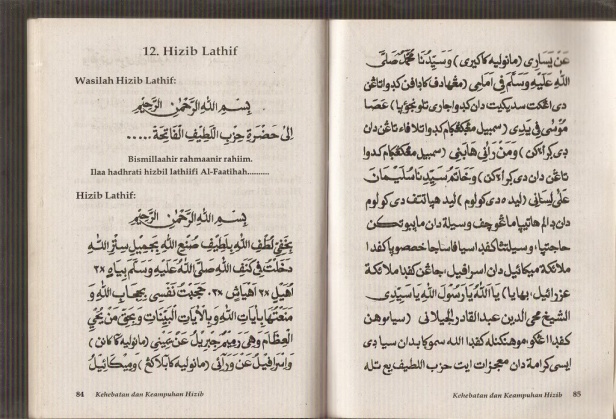 12. Hizib Lathif
Wasilah Hizib Lathif:
بِسْمِ اللهِ الرَّحْمٰنِ الرَّحِيْمِ
اِلَى حَضْرَةِ حِزْبِ اللَّطِيْفِ الْفَاتِحَةُ .....
Bismillaahir rahmaanir rahiim.
Ilaa hadhrati hizbil lathiifi Al-Faatihah.........
Hizib Lathif:
بِسْمِ اللهِ الرَّحْمٰنِ الرَّحِيْمِ
بِخَفِيِّ لُطْفِ اللهِ بِلَطِيْفِ صُنْعِ اللهِ بِجَمِيْلِ سِتْرِ اللهِ
دَخَلْتُ فِي كَنَفِ اللهِ صَلَّى اللهُ عَلَيْهِ وَسَلَّمَ بِيَاهٍ ٣×
اَهْيَلٍ ٣× اَهْيَاشٍ ٣× حَجَبْتُ نَفْسِي بِحِجَابِ اللهِ وَ
مَنَعْتُهَا بِاٰيَاتِ اللهِ وَبِالْاٰيَاتِ الْبَيِّنَاتِ وَبِحَقِّ مَنْ يُحْيِي
الْعِظَامَ وَهِيَ رَمِيْمٌ جِبْرِيْلُ عَنْ يَمِيْنِي (مانوليه كاكانن)
وَاِسْرَافِيْلُ عَنْ وَرَائِي (مانوليه كابلاكڠ) وَمِيْكَائِيْلُ
84 Kehebatan dan Keampuhan Hizib
عَنْ يَسَارِي (مانوليه كاكيري) وَسَيِّدُنَا مُحَمَّدٌ صَلَّى
اللهُ عَلَيْهِ وَسَلَّمَ فِي اَمَامِي (مڠهادف كادافن كدواتاڠن
دي اڠكت سديكيت دان كدواجاري تلونجوقپا) عَصَا
مُوْسَى فِي يَدِي (سمبيل مڠڬڠڬام كدواتلافاءتاڠن دان
دي ڬراءكن) وَمَنْ رَاٰنِي هَابَنِي (سمبيل مڠڬڠڬام كدوا
تاڠن دان دي ڬراءكن) وَخَاتَمُ سَيِّدِنَا سُلَيْمَانَ
عَلَى لِسَانِي (ليده دي كولوم) ليده هيا تتف دي كولوم
دان دالم هاتيپا ماڠوچف وسيلة دان مايبوتكن
حاجتپا، وسيلتپا كفدا سيافاساجا خصوصپا كفدا
ملائكة ميكائيل دان اسرافيل، جاڠن كفدا ملائكة
عزرائيل، بهايا) يا اَللهُ يَا رَسُوْلَ اللهِ يَا سَيِّدِي
الشَّيْخَ مُحْيِ الدِّيْنِ عَبْدَ الْقَادِرِ الْجِيْلَانِي (سايا موهن
كفدا اڠكو، موهنكنله كفدا الله سموڬا بدان سايا دي
ايسي كرامة دان معجزات ايت حزب اللطيف يڠ تله
Kehebatan dan Keampuhan Hizib 85